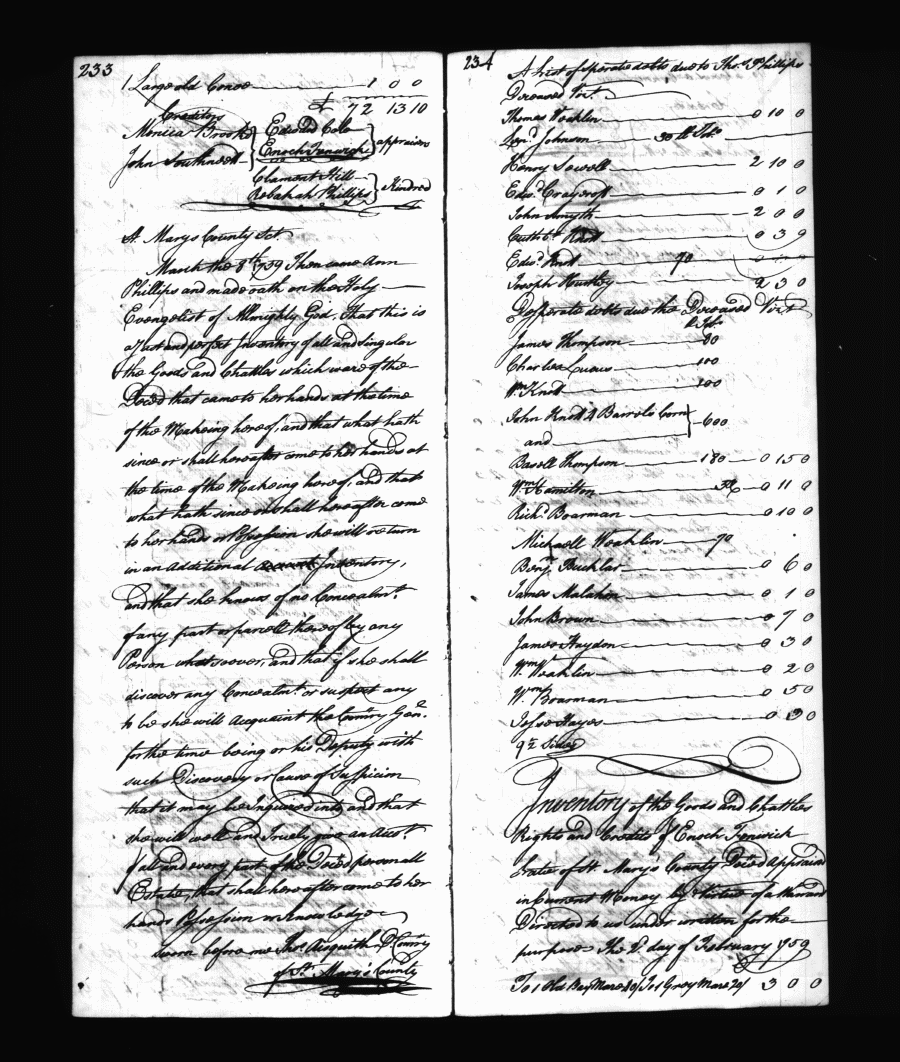 233
1 Large old Conoe 1 0 0
£ 72 13 10
Creditors
Monica Brooke Edward Cole
Enoch Fenwick appraisrs
John Southwell
Clement Hill
Rebakah Phillips Kindred
St. Marys County Sct.
March the 8th 1759 Then came Ann
Phillips and made oath on the Holy
Evangelist of Allmighty God, That this is
a Just and perfect Inventory of all and singular
the Goods and Chattles which ware of the
Deced that came to her hands at the time
of the Makeing hereof, and that what hath
since or shall hereafter come to her hands at
the time of the Makeing hereof, and that
what hath since or shall hereafter come
to her hands or Possession she will return
in an additional Inventory,
and that she knows of no Concealmt.
of any part or parcell thereof by any
Person whatsoever, and that if she shall
discover any Concealmt or suspect any
to be she will Acquaint the Comry Genl.
for the time being or his Deputy with
such Discovery or Cause of Suspicion
that it may be Inquired into and that
she will well and Truely give an Acct.
of all and every part of the Deced personall
Estate, that shall hereafter come to her
hands Possession or Knowledge
sworn before me Thos. Aisquith Dy. Comry
of St. Mary's County
234
A List of sperate debts due to Thos. Phillips
Deceased Vizt.
Thomas Weaklin 0 10 0
Leod. Johnson 30 lb Tobo
Henry Sewell 2 10 0
Edwd. Craycroft 0 1 0
John Smyth 2 0 0
Cuthbt. Knott 0 3 9
Edwd. Knott 70
Joseph Huntley 2 3 0
Desperate debts due the Deceased Vizt
lb Tob.
James Thompson 80
Charles Lucus 100
Wm. Knott 100
John Knott 4 Barrels Corn
and 600
Basell Thompson 180 0 15 0
Wm. Hamilton 0 11 0
Richd. Boarman 0 10 0
Michaell Weaklin 70
Benj. Buckler 0 6 0
James Malahon 0 1 0
John Brown 0 7 0
James Haydon 0 3 0
Wm. Weaklin 0 2 0
Wm. Boarman 0 5 0
Jesse Hayes 0 3 0
9 1/2 Sides
Inventory of the Goods and Chattles
Rights and Credits of Enoch Fenwick
Late of St. Mary's County Deced Appraised
in Current Money by Virtue of a Warrant
Directed to us under written for the
purpose The day of February 1759
To 1 Old Bay Mare To 1 Grey Mare 20/ 3 0 0